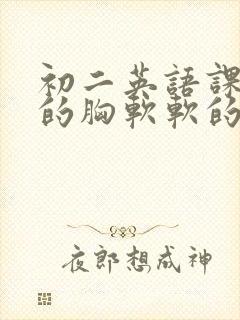 初二英語課
的胸軟軟的
夜郎想成神